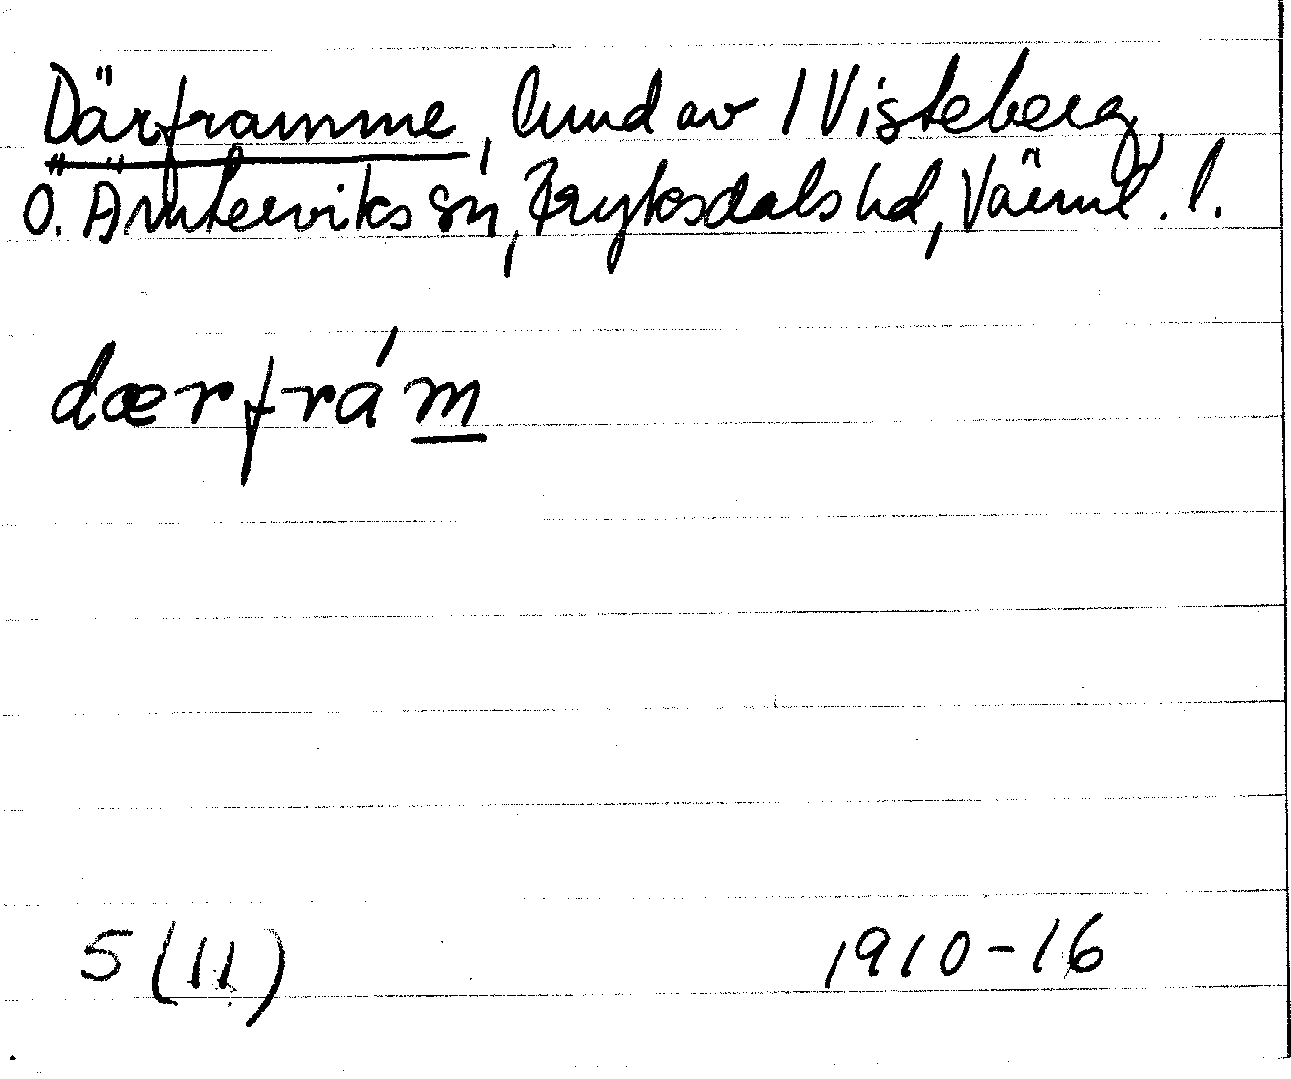 Därframme, lund av 1 Visteberg,
Ö. Ämterviks sn, Fryksdals hd, Värml. l.
dærfrá´m
5 (11)
1910-16